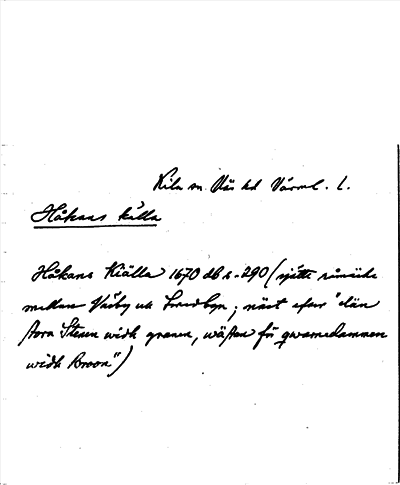 Kila sn Näs hd Värml. l.
Håkans källa
Håkans Kiälla 1670 db s. 290 (sjätte råmärke
mellan Väsby och byn; näst efter "dän
stora Stenen widh granen, wästan för qwarnedammen
widh Broon")